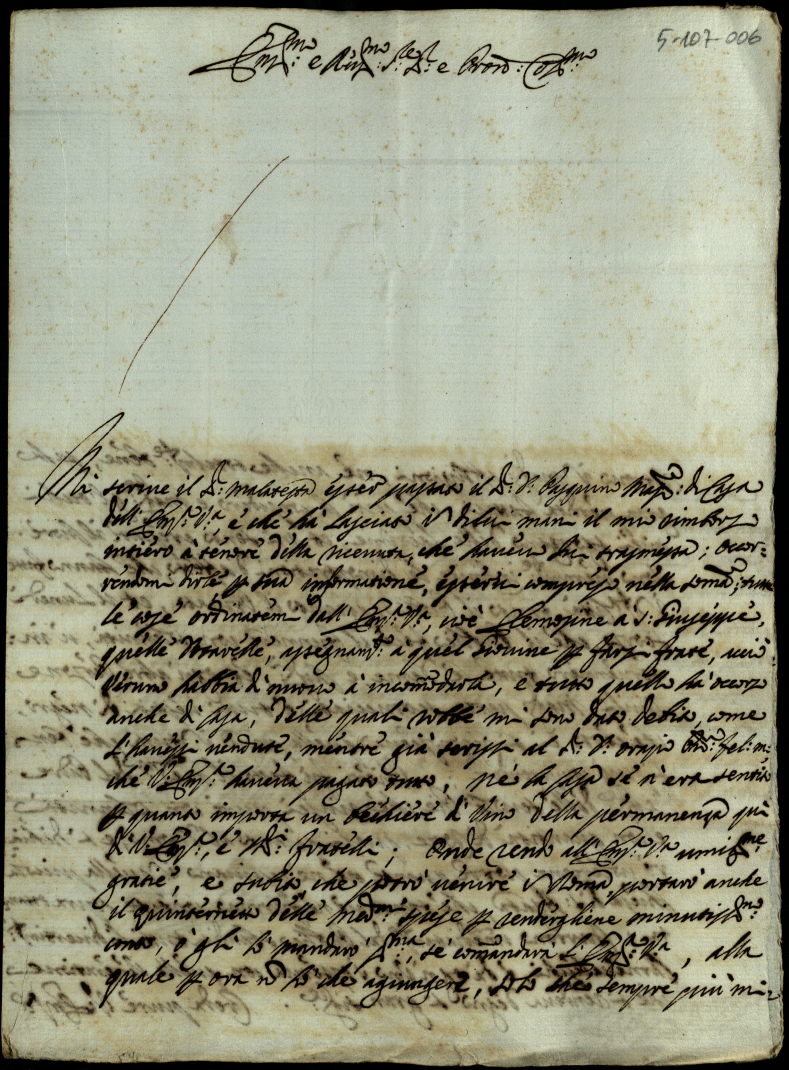 5-107-006
Em.mo e Rev.mo Sig.re Sig.r e Pron: Col.mo
Mi scrive il S.r Malatesta esser passato il S.r D. Pasquin di Casa
dell'Em.za V.ra, e che hà lasciato in di lui mani il mio rimborso
intiero à tenore della ricevuta, che havevo trasmessa; occor=
rendomi dirle p sua informatione, essersi compreso nella soma tutte
le cose ordinatemi dall'Em.za V.ra, cioè Elemosine à S: Giuseppe,
quelle Novelle, assegnam.ti à quel Giovine p farsi frate, acciò
l'Erario habbia di nuovo à incomodarla, e tutto quello hà occorso
anche di Casa, delle quali robbe mi son dato debito, come
l'havessi vendute, mentre già scrissi al S.r D. Orazio fel: m:
che V. Em.za haveva pagato tutto, nè la Casa se n'era sentita
p quanto importa un bichiere di vino della permanenza quì
di V. Em.za, e fratelli; Onde rendo all'Em.za V.ra umilis.me
gratie, e subito, che potrò venire in Roma, portarò anche
il quinternetto delle med.me spese p renderghene minutiss.mo
conto, ò gli lo mandarò p.ma, se comandarà l'Em.za V.ra, alla
quale p ora nō hò che agiungere, solo che sempre più mi=